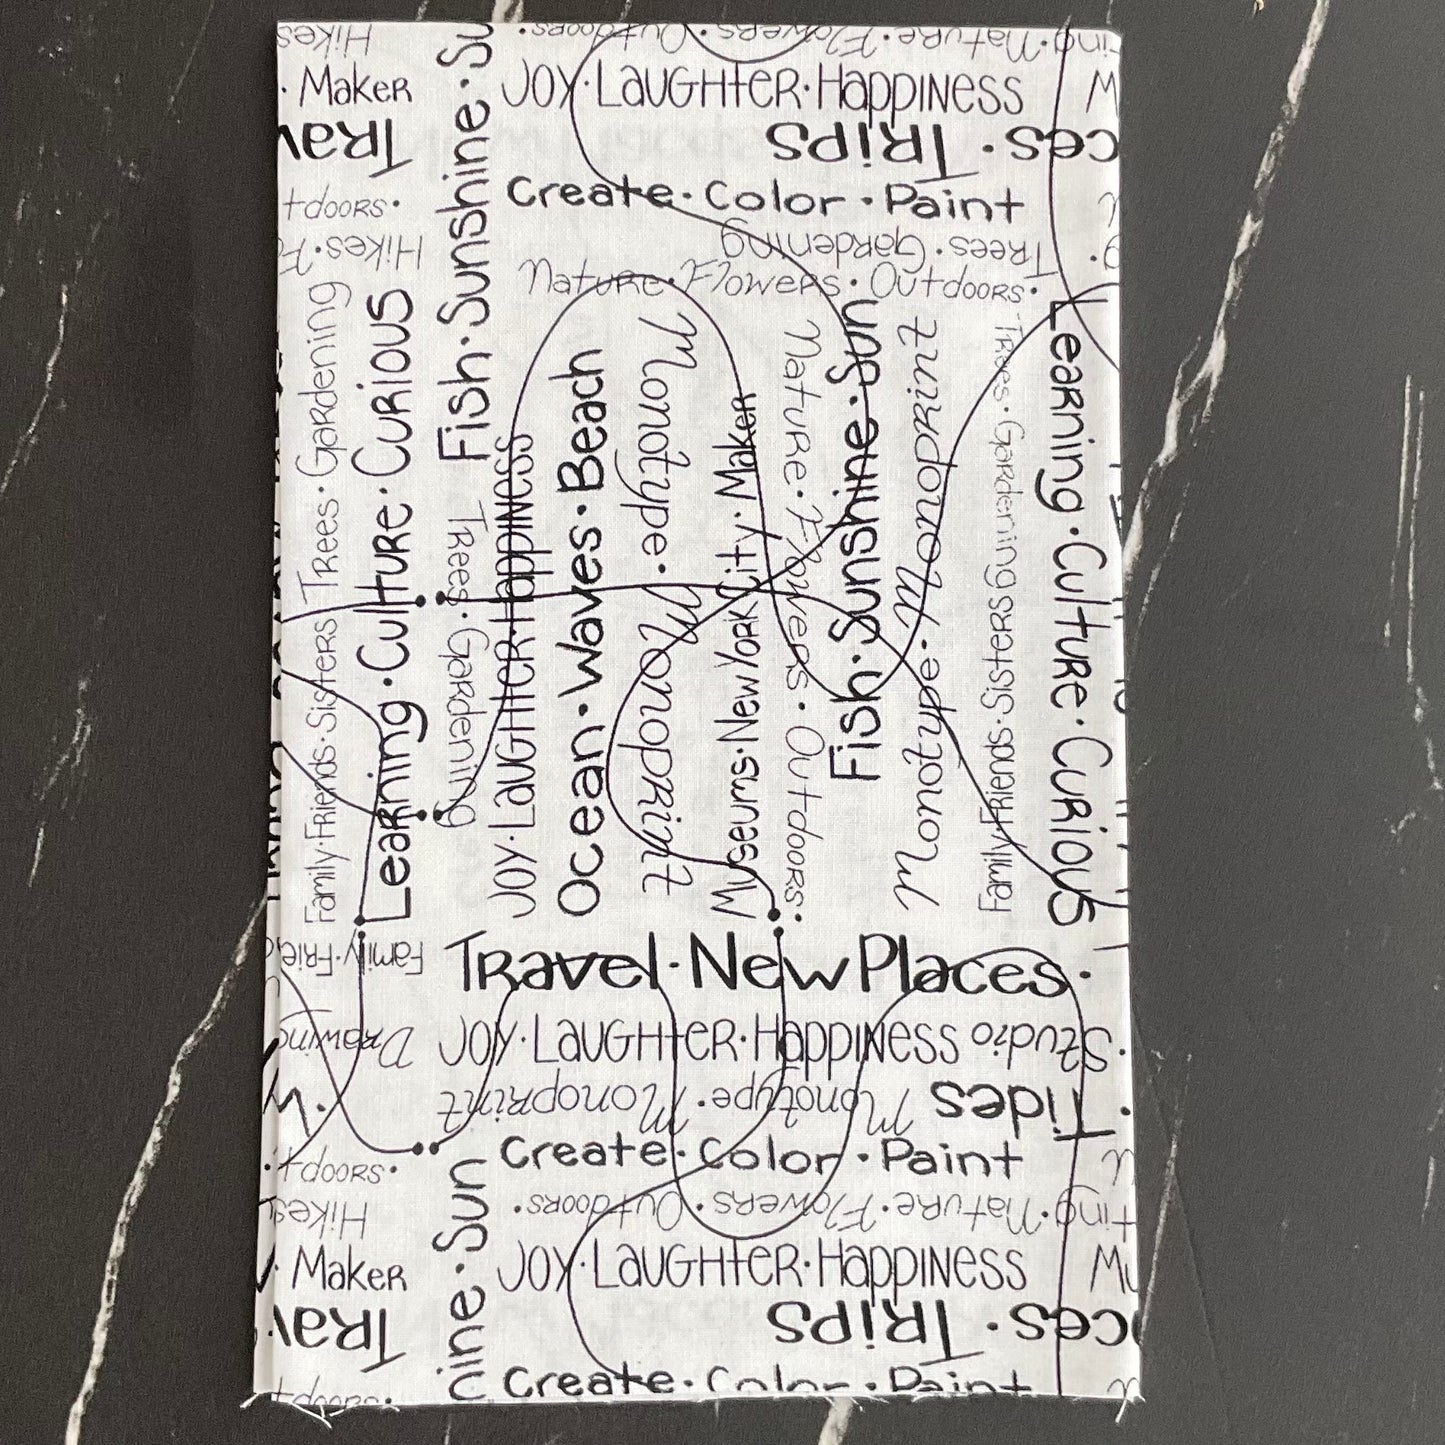 Hikes
Nature · Flowers · Outdoors ·
· Maker
Joy · Laughter · Happiness
Trav
Trips
ces ·
Fish · Sunshine · Su
Create · Color · Paint
tdoors ·
Hikes · F
Trees · Gardening
Nature · Flowers · Outdoors ·
Trees · Gardening
Family · Friends · Sisters
Learning · Culture · Curious
Trees · Gardening
Joy · Laughter · Happiness
Ocean · Waves · Beach
Monotype · Monoprint
Museums · New York City · Maker
Nature · Flowers · Outdoors ·
Fish · Sunshine · Sun
Monotype · Monoprint
Trees · Gardening
Family · Friends · Sisters
Learning · Culture · Curious
Family · Frie
Travel · New Places ·
Drawing
Joy · Laughter · Happiness
Studio ·
Monotype · Monoprint
Tides ·
Create · Color · Paint
tdoors ·
Hikes
Nature · Flowers · Outdoors ·
ine · Sun
· Maker
Joy · Laughter · Happiness
Mu
Trav
Trips
ces ·
Create · Color · Paint
tdoors